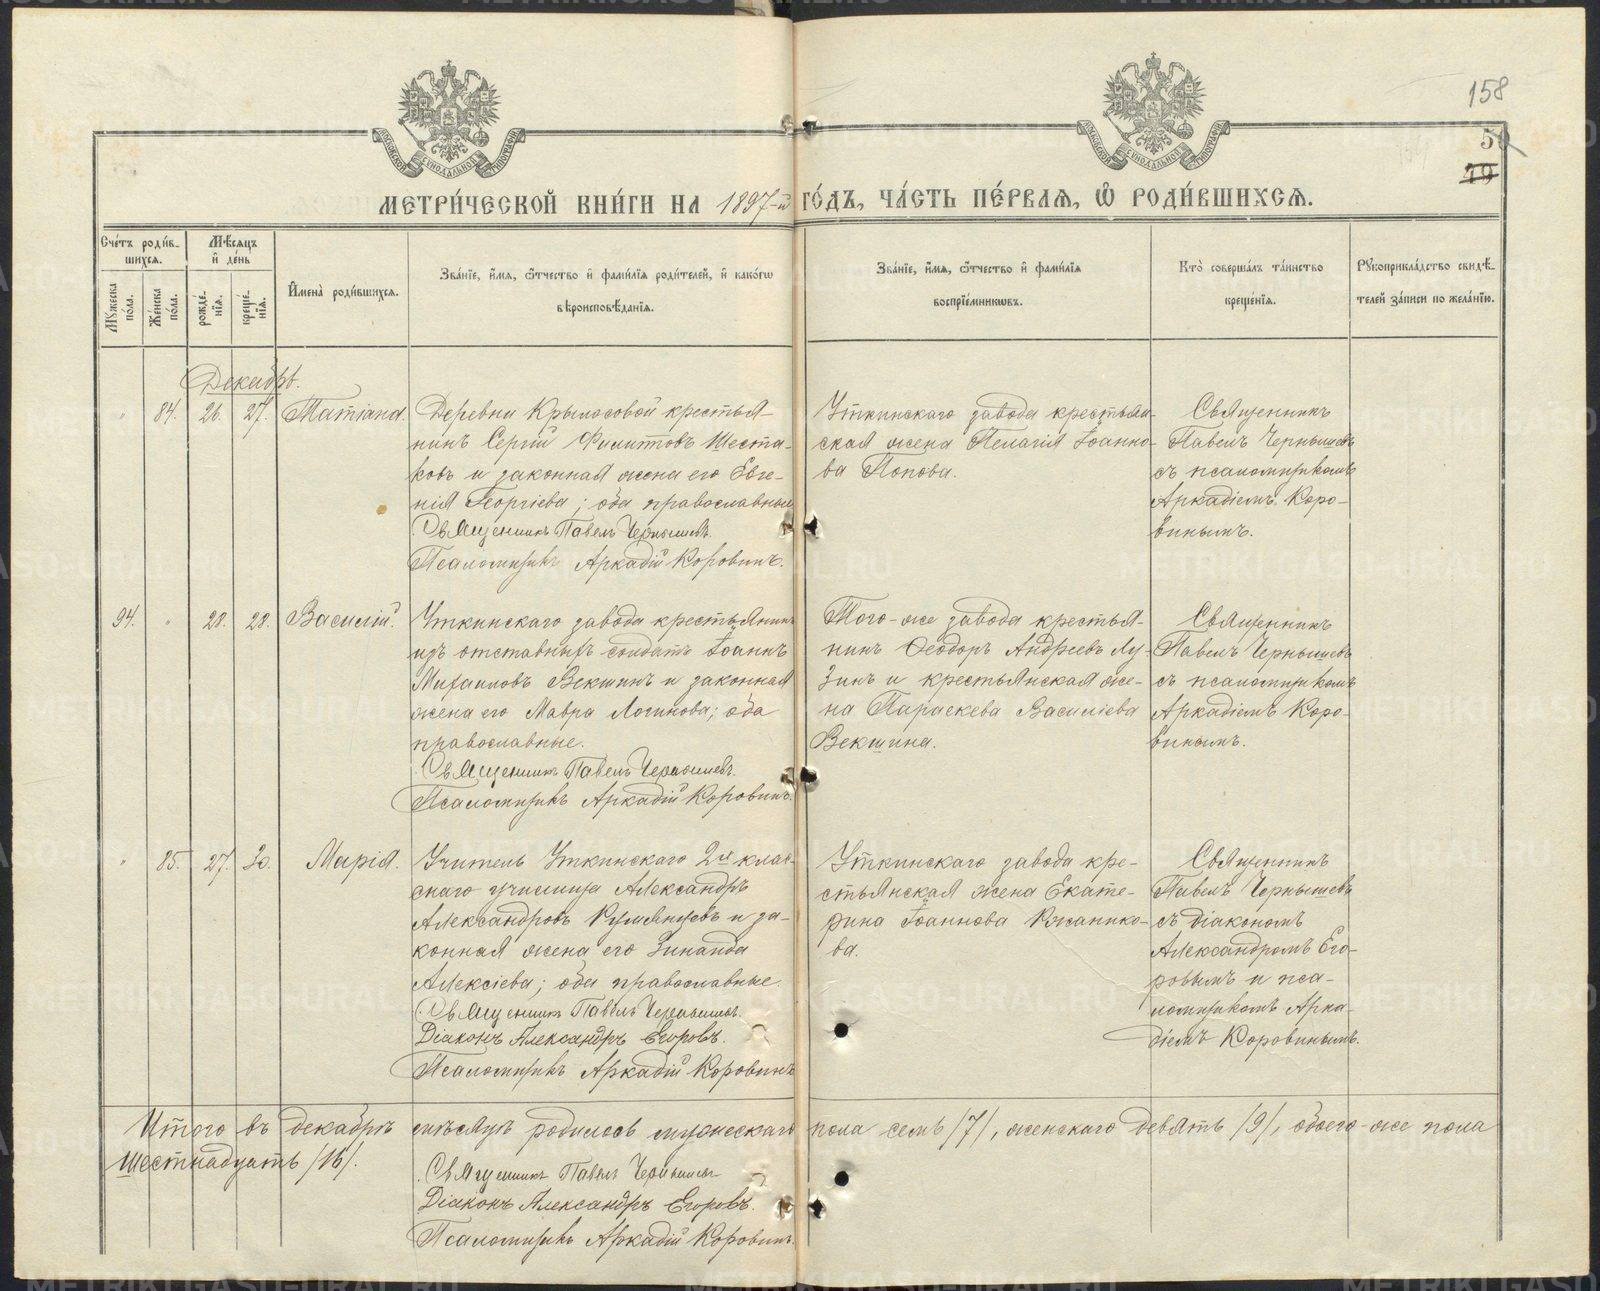 158
50
49
МЕТРИ́ЧЕСКОЙ КНИ́ГИ НА 1897-й ГО́ДЪ, ЧА́СТЬ ПЕ́РВАЯ, Ѡ РОДИ́ВШИХСЯ.
Сче́тъ роди́в-
шихся.
Мѣ́сяцъ
и҆ де́нь
Мꙋ́жеска по́ла.
Же́нска по́ла.
рожде́-
нїя.
креще́-
нїя.
И҆мена̀ роди́вшихся.
Зва́нїе, и҆́мя, ѻ҆́тчество и҆ фами́лїя роди́телей, и҆ како́гѡ
вѣроисповѣ́данїя.
Зва́нїе, и҆́мя, ѻ҆́тчество и҆ фами́лїя
воспрїе́мникѡвъ.
Кто̀ соверша́лъ та́инство
креще́нїя.
Рꙋкоприкла́дство свидѣ́-
телей за́писи по жела́нїю.
Декабрь.
" 84. 26. 27. Татіана.
Деревни Крылосовой крестья-
нинъ Сергій Филиповъ Шеста-
ковъ и законная жена его Евге-
нія Георгіева; оба православные
Священникъ Павелъ Чернышевъ.
Псаломщикъ Аркадій Коровинъ.
Уткинскаго завода крестьян-
ская жена Пелагія Іоанно-
ва Попова.
Священникъ
Павелъ Чернышевъ
съ псаломщикомъ
Аркадіемъ Коро-
винымъ.
94. " 28. 28. Василій.
Уткинскаго завода крестьянинъ
изъ отставныхъ солдатъ Іоаннъ
Михаиловъ Векшинъ и законная
жена его Мавра Логинова; оба
православные.
Священникъ Павелъ Чернышевъ.
Псаломщикъ Аркадій Коровинъ.
Того-же завода крестья-
нинъ Ѳеодоръ Андреевъ Лу-
зинъ и крестьянская же-
на Параскева Василіева
Векшина.
Священникъ
Павелъ Чернышевъ
съ псаломщикомъ
Аркадіемъ Коро-
винымъ.
" 85. 27. 30. Марія.
Учитель Уткинскаго 2х клас-
снаго училища Александръ
Александровъ Румянцевъ и за-
конная жена его Зинаида
Алексіева; оба православные.
Священникъ Павелъ Чернышевъ.
Діаконъ Александръ Егоровъ.
Псаломщикъ Аркадій Коровинъ
Уткинскаго завода кре-
стьянская жена Екате-
рина Іоаннова Ржаннико-
ва.
Священникъ
Павелъ Чернышевъ
съ діакономъ
Александромъ Его-
ровымъ и пса-
ломщикомъ Арка-
діемъ Коровинымъ.
Итого въ декабрѣ мѣсяцѣ родилось мужескаго пола семь /7/, женскаго девять /9/, обоего-же пола
шестнадцать /16/.
Священникъ Павелъ Чернышевъ
Діаконъ Александръ Егоровъ.
Псаломщикъ Аркадій Коровинъ.
METRIKI.GASO-URAL.RU